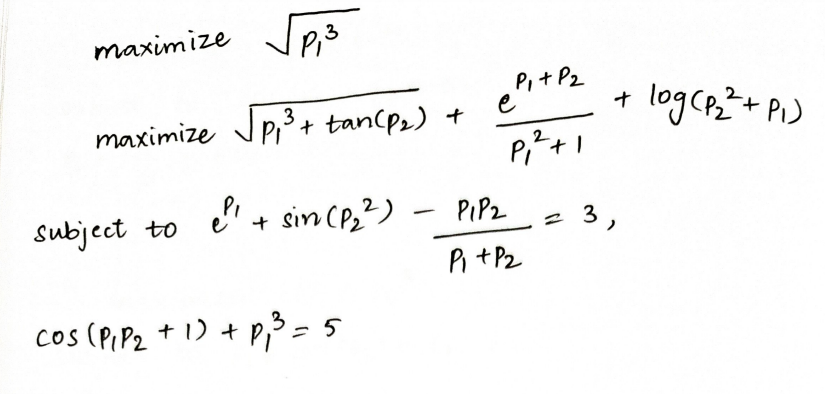 maximize √(p₁³)
maximize √(p₁³ + tan(p₂)) + e^(p₁+p₂) / (p₁² + 1) + log(p₂² + p₁)
subject to e^(p₁) + sin(p₂²) − p₁p₂ / (p₁ + p₂) = 3,
cos(p₁p₂ + 1) + p₁³ = 5